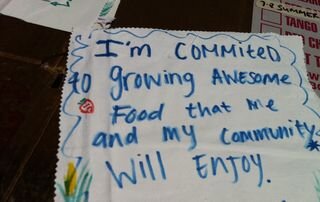 I'm COMMITED
to growing AWESOME
Food that me
and my community
Will ENJOY.
7-8 SUMMER
TANGO